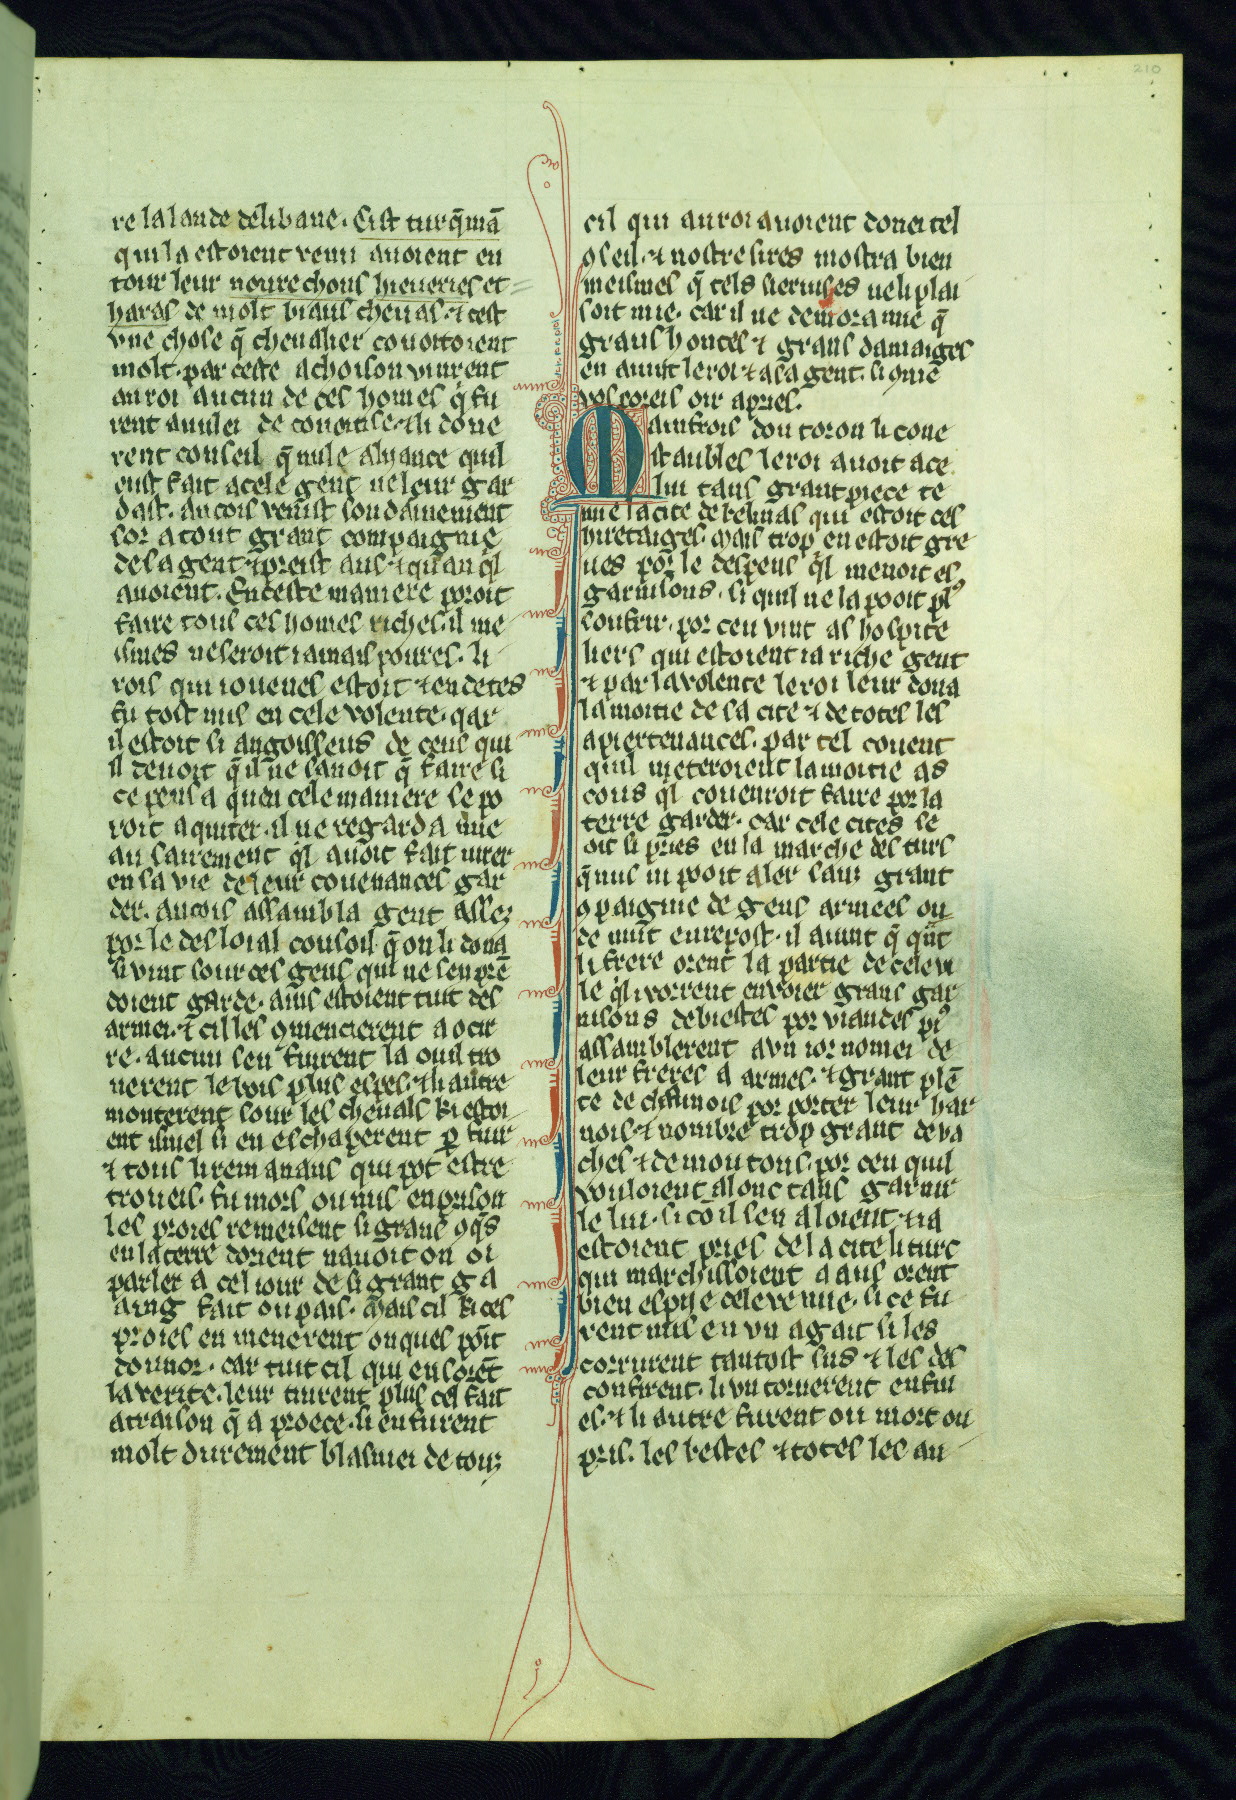 210
re la lande delibane. Cist turq̄mā
qui la estoient venu auoient en
tour leur noure chous hieueries et
haras de molt biaus cheuas. ⁊ cest
vne chose q̄ cheualier couoitoient
molt. par ceste achoison vinrent
au roi aucun de ces homes q̓ fu
rent anulei de couoitise. ⁊ li done
rent conseil q̄ nule aliance quil
eust fait a cele gent ne leur gar
dast. ancois venist soudainement
sor a tout grant compaignie
de sa gent ⁊ preist aus ⁊ quan q̓l
auoient. En ceste maniere poroit
faire tous ces homes riches. il me
ismes ne seroit iamais poures. li
rois qui iouenes estoit ⁊ en detes
fu tost mis en cele volente. qar
il estoit si angoisseus de ceus qui
il deuoit q̄ il ne sauoit q̄ faire si
ce pensa quen cele maniere se po
roit aquiter. il ne regarda mie
au sairement q̓l auoit fait iurer
en sa vie de leur couenances gar
der. ancois assambla gent assez
por le desloial consoil q̄ on li dona
si vint sour ces gens qui ne sen prē
doient garde. ains estoient tuit des
armei. ⁊ cil les ꝯmencierent a ocir
re. aucun sen fuirent la ou il tro
uerent le bois plus espes. ⁊ li autre
monterent sour les cheuals ki estoi
ent isniel si en eschaperent ꝑ fuir
⁊ tous li remanans qui pot estre
troueis. fu mors ou mis en prison
les proies remeisent si grans ꝯq̄s
en la terre dorient nauoit on oi
parler a cel iour de si grant ga
aing fait ou pais. Mais cil ki ces
proies en menerent onques pōit
dounor. car tuit cil qui en sorēt
la verite. leur tinrent plus cel fait
a traison q̄ a proece. si en furent
molt durement blasmei de touz
cil qui au roi auoient donei tel
ꝯseil. ⁊ nostre sires mostra bien
meismes q̄ tels seruises ne li plai
soit mie. car il ne demora mie q̄
grans hontes ⁊ grans damaiges
en auint le roi ⁊ a sa gent. si ꝯme
vos poreis oir apries.
Mainfrois dou toron li cone
staubles le roi auoit ace
lui tans grant piece te
nue la cite de belinas qui estoit ces
hiretaiges. Mais trop en estoit gre
ues por le despens q̓l menoit es
garnisons. si quil ne la pooit pl᾽
soufrir. por ceu vint as hospite
liers qui estoient ia riche gent
⁊ par la volente le roi leur dona
la moitie de la cite ⁊ de totes les
apiertenances. par tel couent
quil meteroient la moitie as
cous q̓l couenroit faire por la
terre garder. car cele cites se
oit si pries en la marche des turs
q̄ nus ni pooit aler sanz grant
ꝯpaignie de gens armees ou
de nuit en repost. il auint q̄ quāt
li frere orent la partie de cele vi
le q̓l i vorrent enuoier grans gar
nisons de biestes por viandes pᵢ᾽
assamblerent a vn ior nomei de
leur freres a armes. ⁊ grant plē
te de chamois por porter leur har
nois. ⁊ nombre trop grant de va
ches ⁊ de moutons. por ceu quil
vouloient a lonc tans garnir
le lui. si cō il sen aloient ⁊ ia
estoient pries de la cite li turc
qui marchissoient a aus orent
bien espije cele venue. si ce fu
rent mis en vn agait si les
corrurent tantost sus ⁊ les des
confirent. li vn tornerent en fui
es. ⁊ li autre furent ou mort ou
pris. les bestes ⁊ totes les au